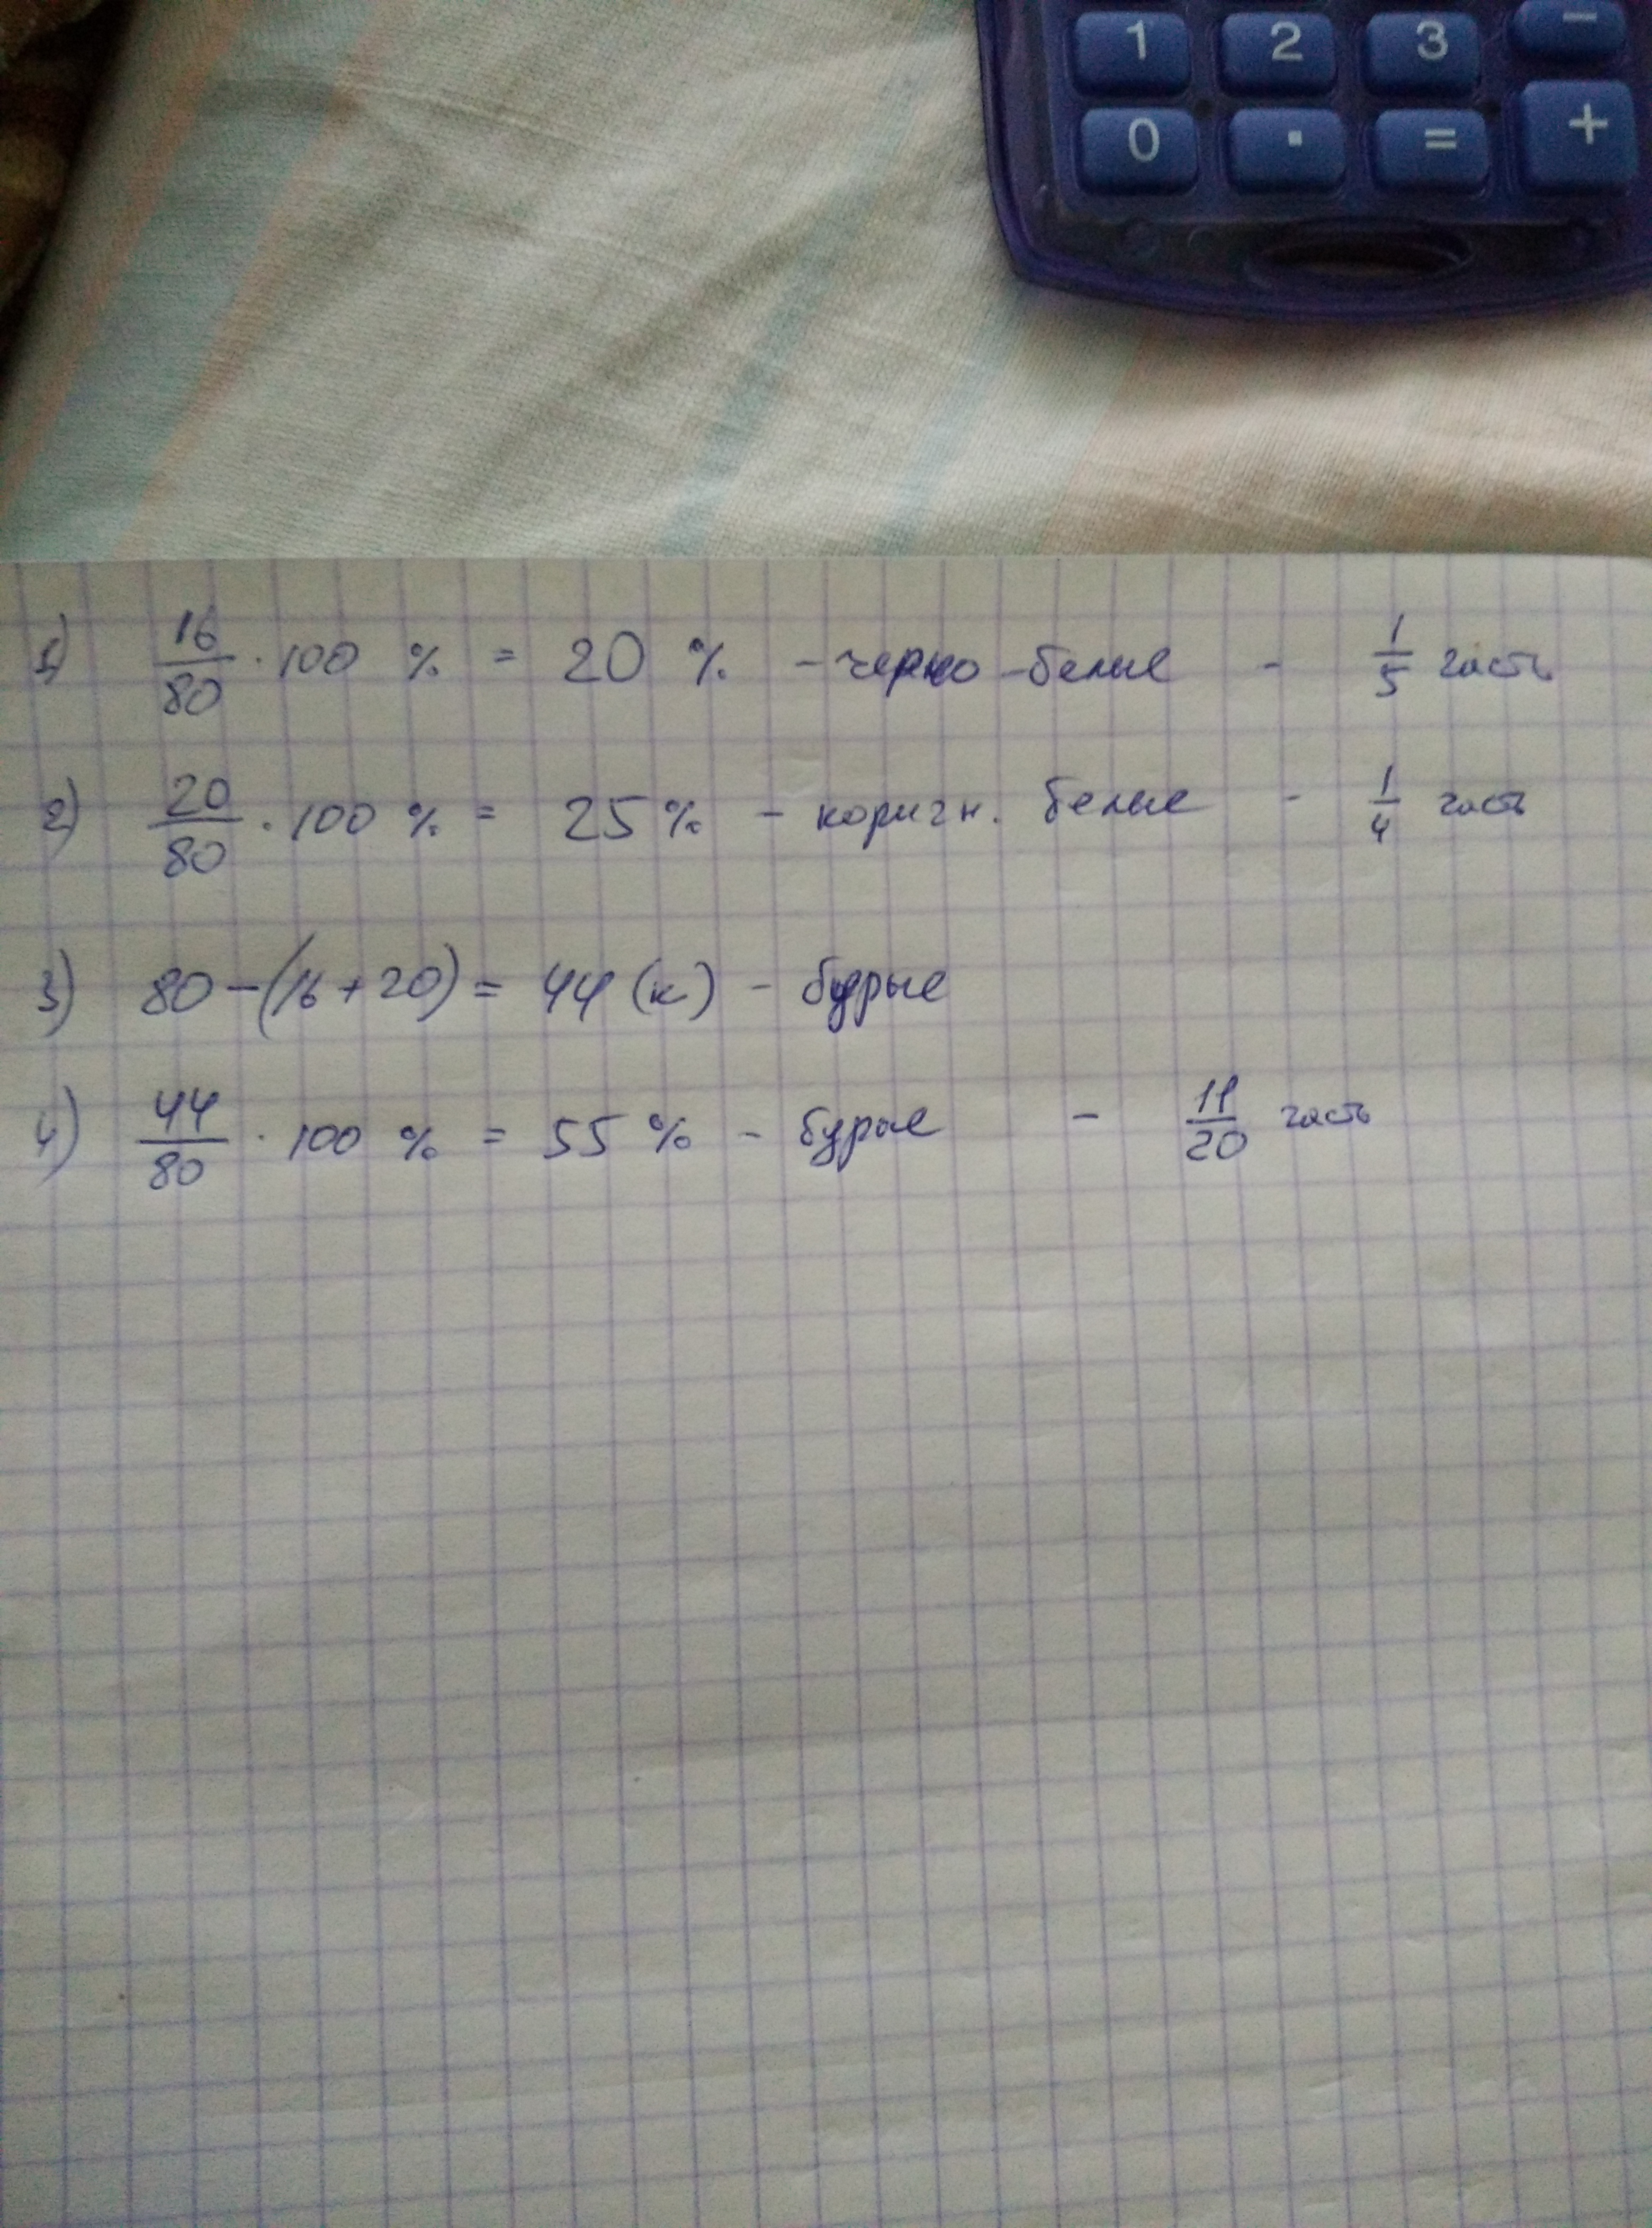 1 2 3 −
0 . = +
1) 16/80 · 100 % = 20 % - черно-белые - 1/5 часть
2) 20/80 · 100 % = 25 % - коричн. белые - 1/4 часть
3) 80 - (16 + 20) = 44 (к) - бурые
4) 44/80 · 100 % = 55 % - бурые - 11/20 часть